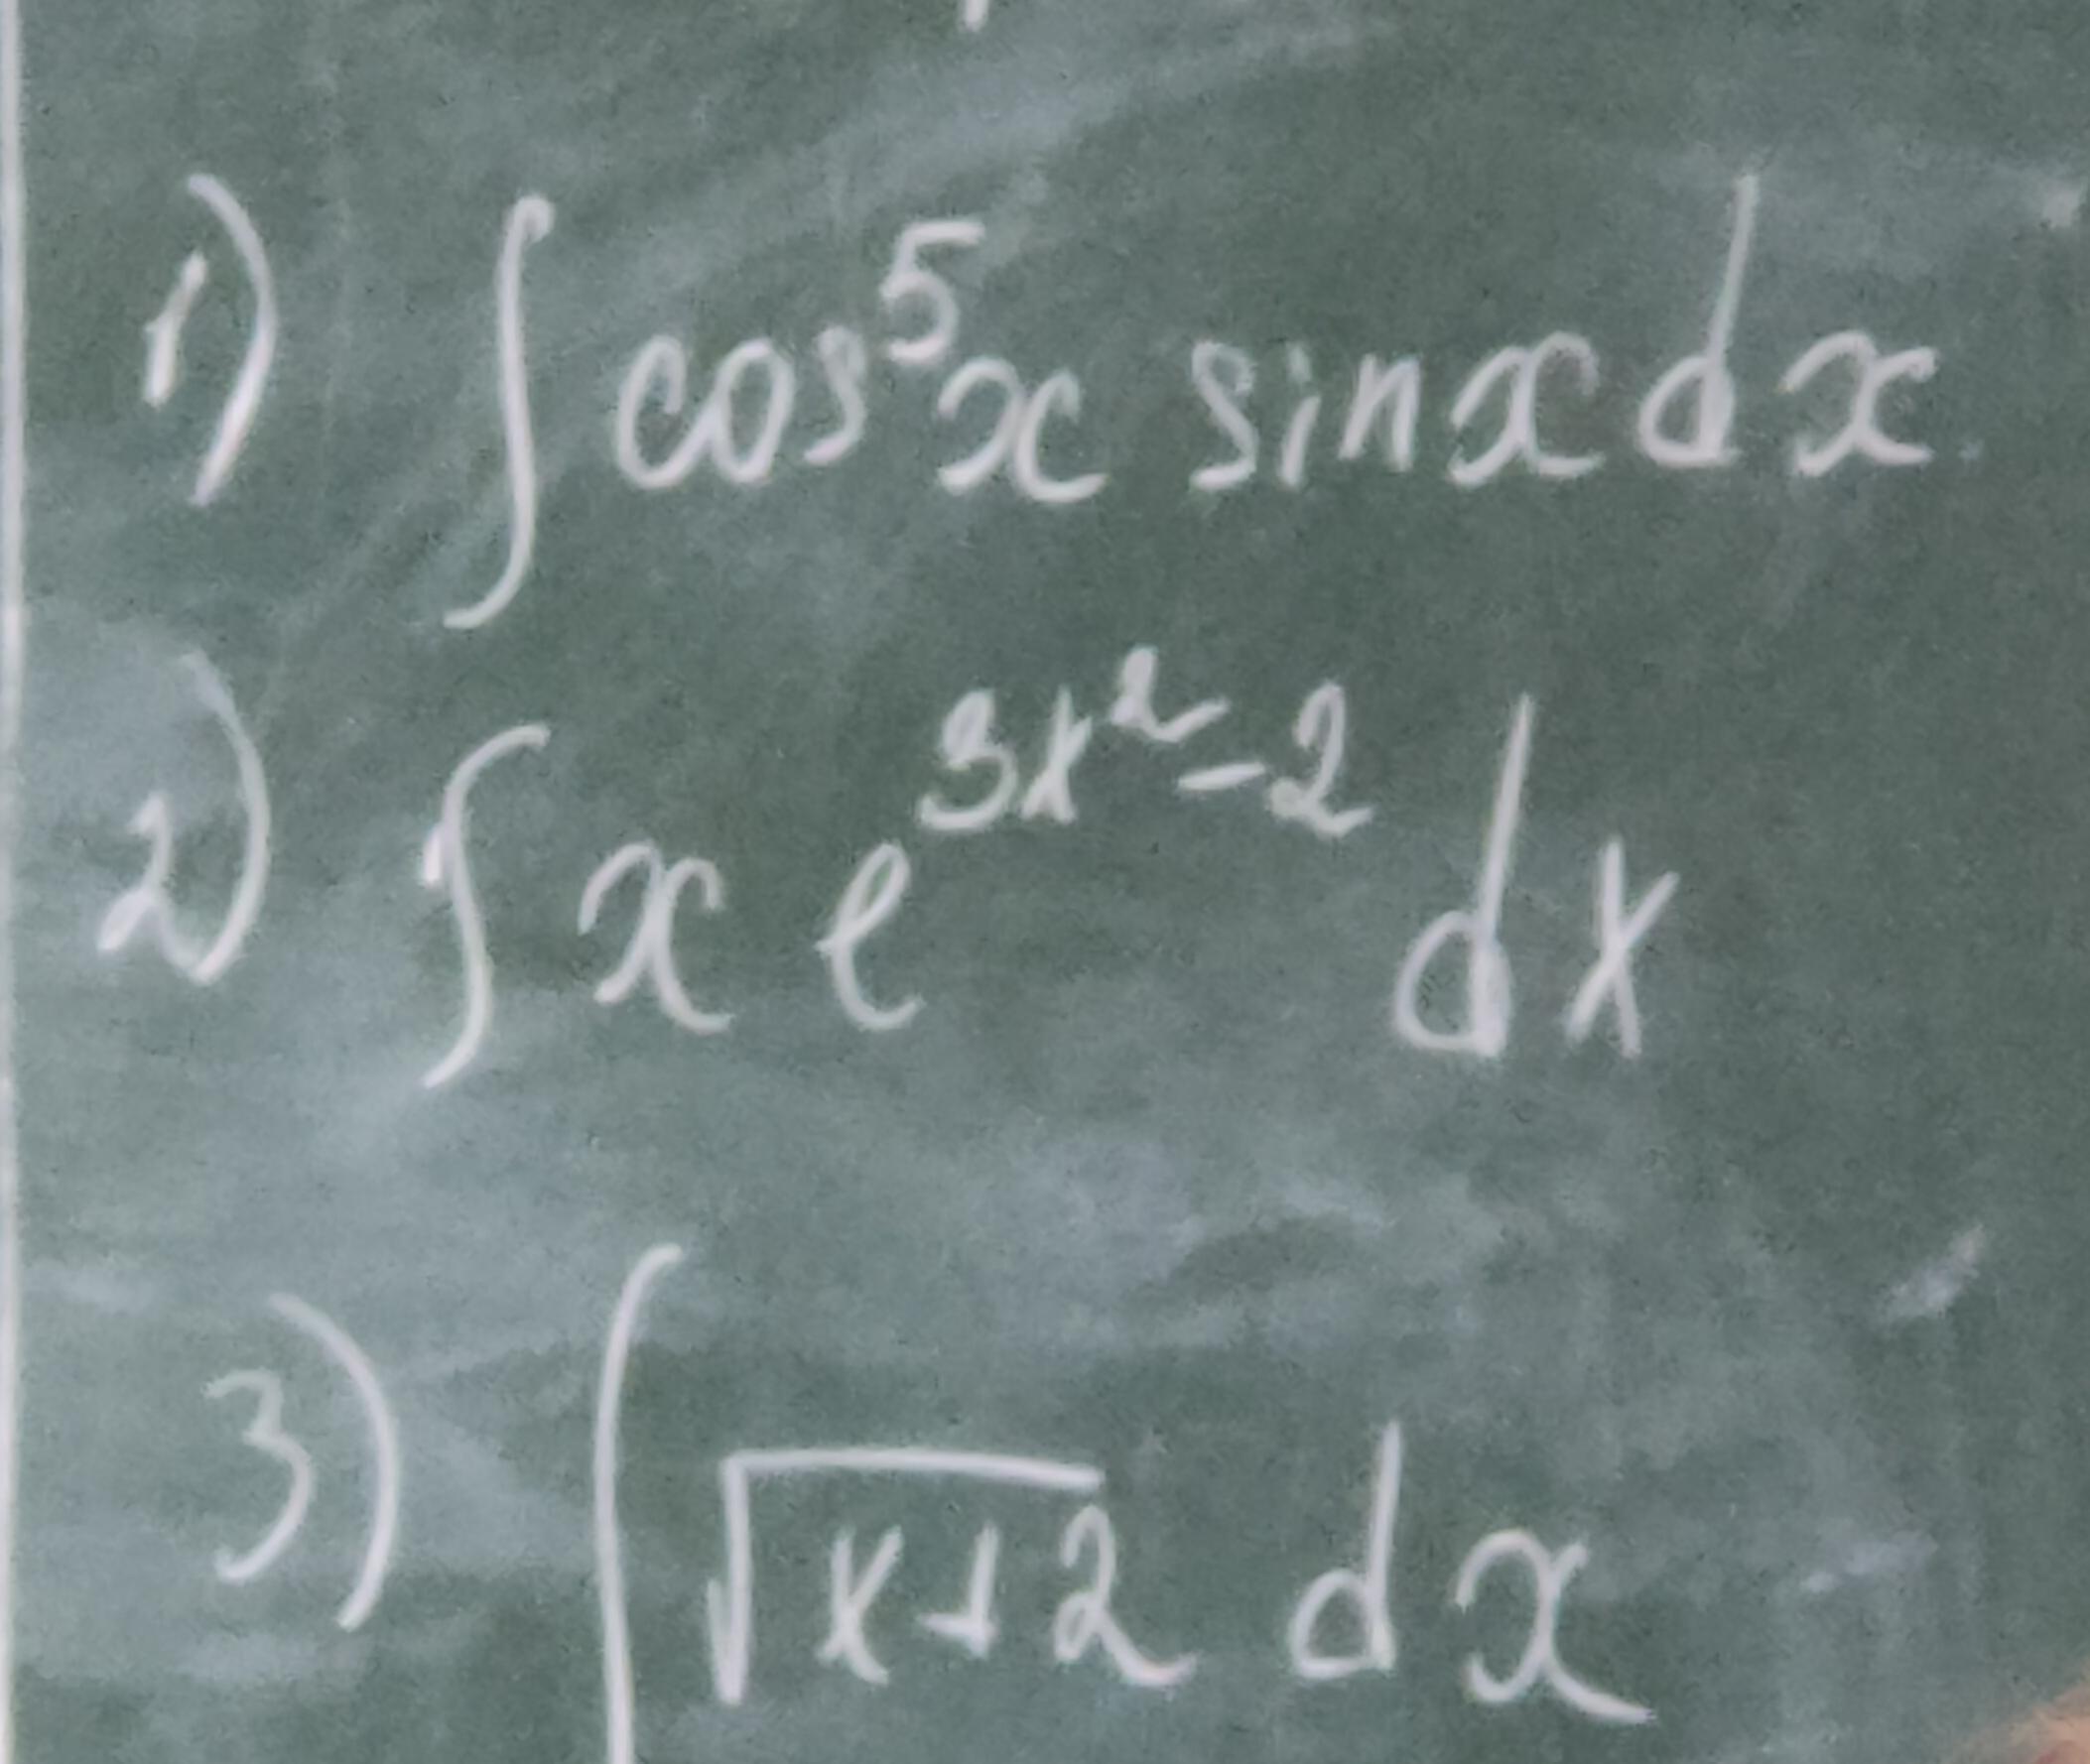 1) ∫ cos⁵x sinx dx
2) ∫ x e^{3x²-2} dx
3) ∫ √(x+2) dx